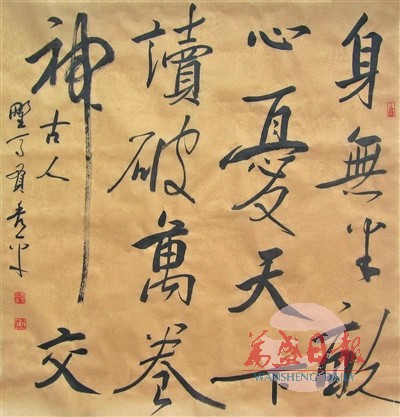 身無半畝
心憂天下
讀破萬卷
神交
古人
萬盛日报
WANSHENG DAILY